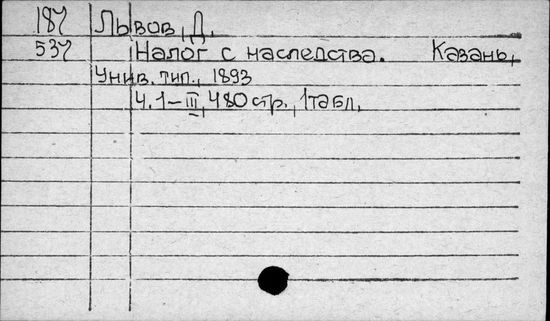 187 Львов, Д.
537 Налог с наследства. Казань,
Унив. тип., 1893
Ч. 1-III, 480 стр., 1 табл.